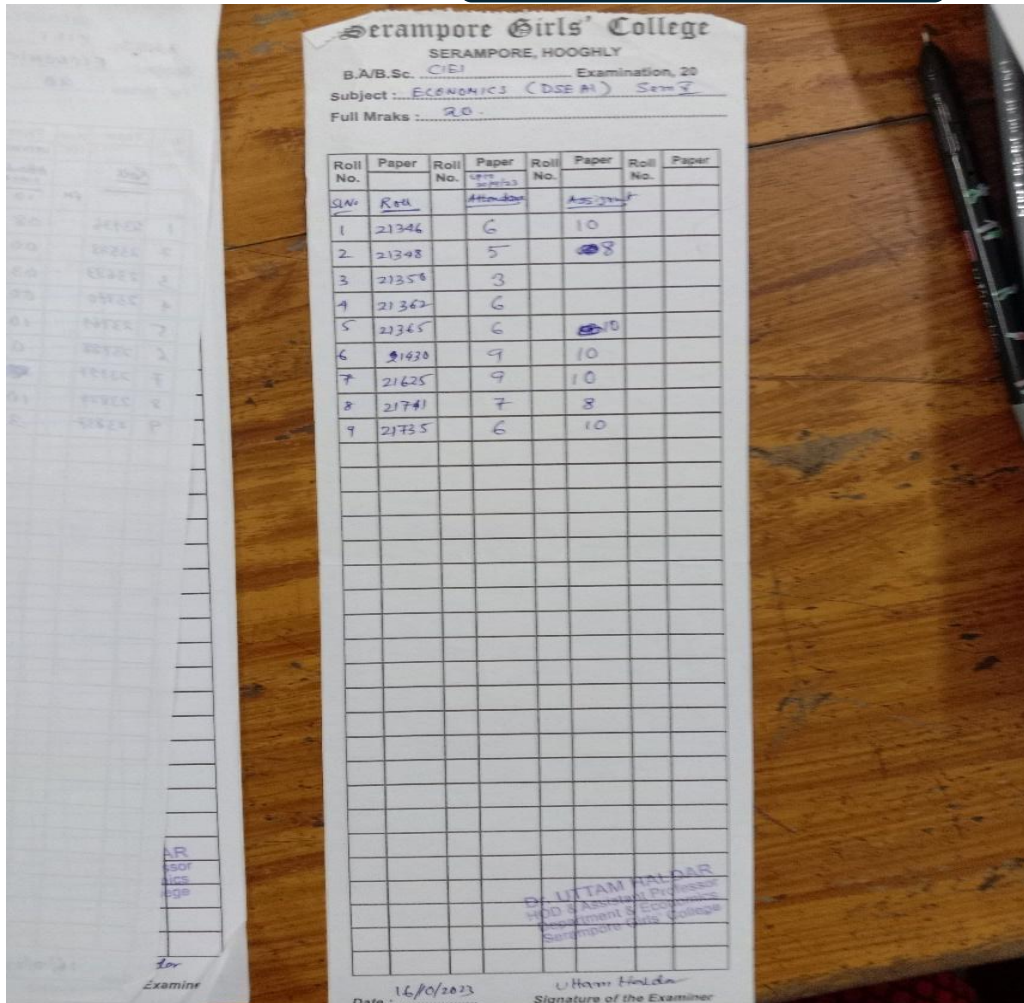 Serampore Girls' College
SERAMPORE, HOOGHLY
B.A/B.Sc. CIEI Examination, 20
Subject : ECONOMICS (DSE A1) Sem V
Full Mraks : 20.
Roll No. Paper Roll No. Paper Roll No. Paper Roll No. Paper
upto
Sl No Roll Attendance Assignment
1 21346 6 10
2 21348 5 8
3 21350 3
4 21362 6
5 21365 6 10
6 21430 9 10
7 21625 9 10
8 21741 7 8
9 21735 6 10
Dr. UTTAM HALDAR
HOD & Assistant Professor
Department & Economics
Serampore Girls' College
16/10/2023 Uttam Haldar
Date : Signature of the Examiner
AR
ssor
ics
ege
dar
Examine